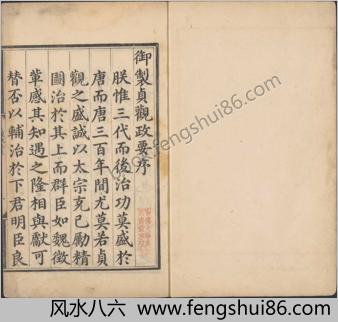 御製貞觀政要序
朕惟三代而後治功莫盛於
唐而唐三百年間尤莫若貞
觀之盛誠以太宗克己勵精
圖治於其上而群臣如魏徵
輩感其知遇之隆相與獻可
替否以輔治於下君明臣良
www.fengshui86.com
风水八六 www.fengshui86.com